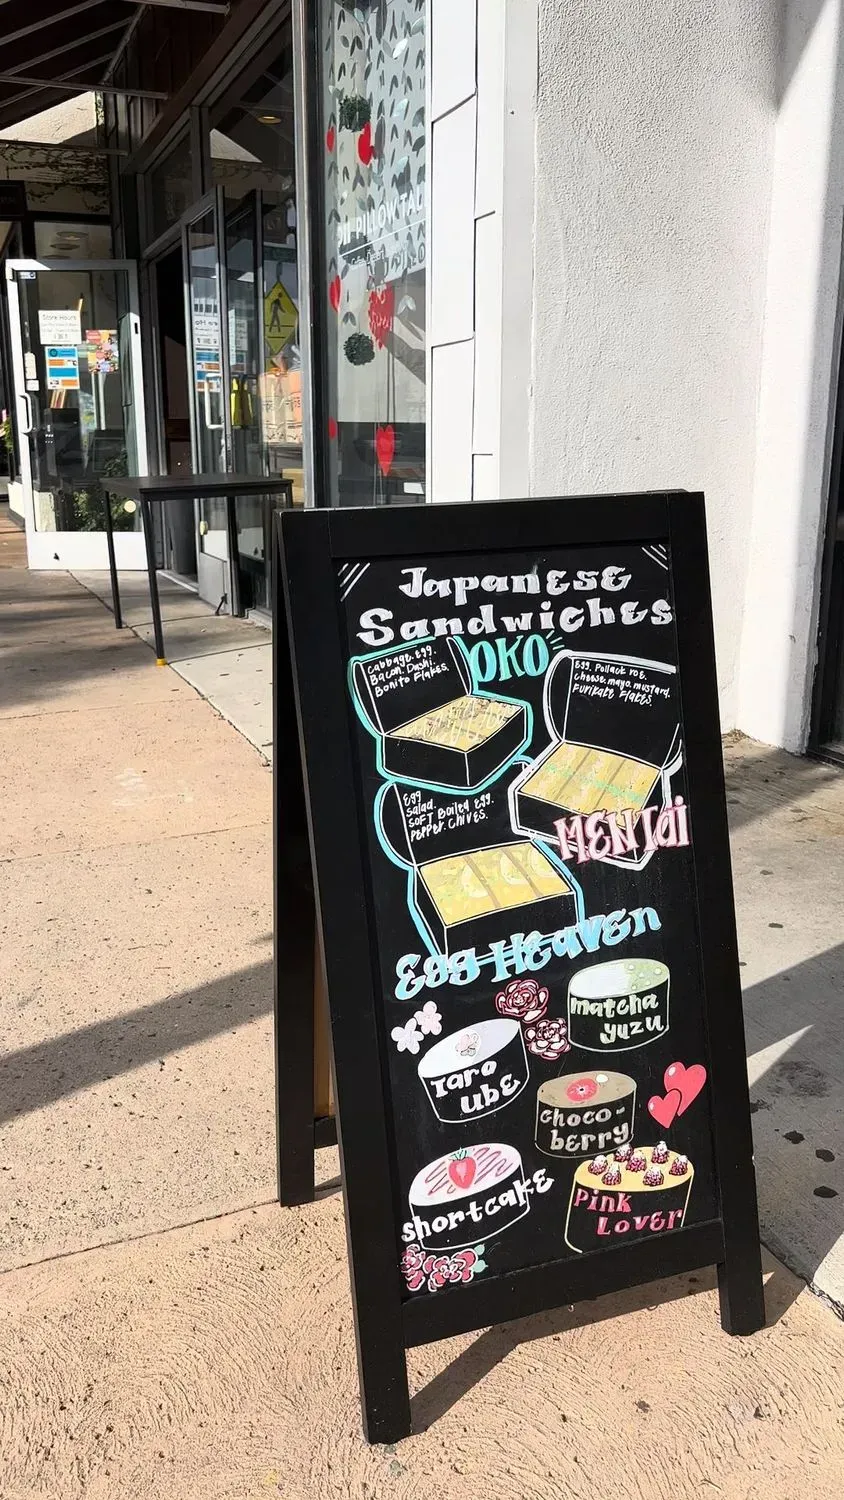 Japanese
Sandwiches
OKO
Cabbage. Egg.
Bacon. Dashi.
Bonito Flakes.
Egg. Pollack roe.
cheese. mayo. mustard.
Furikake Flakes.
MENTAi
Egg
Salad.
SOFT Boiled Egg.
Pepper. Chives.
Egg Heaven
matcha
yuzu
Taro
ube
Choco-
berry
shortcake
Pink
Lover
PILLOW TAL
Store Hours